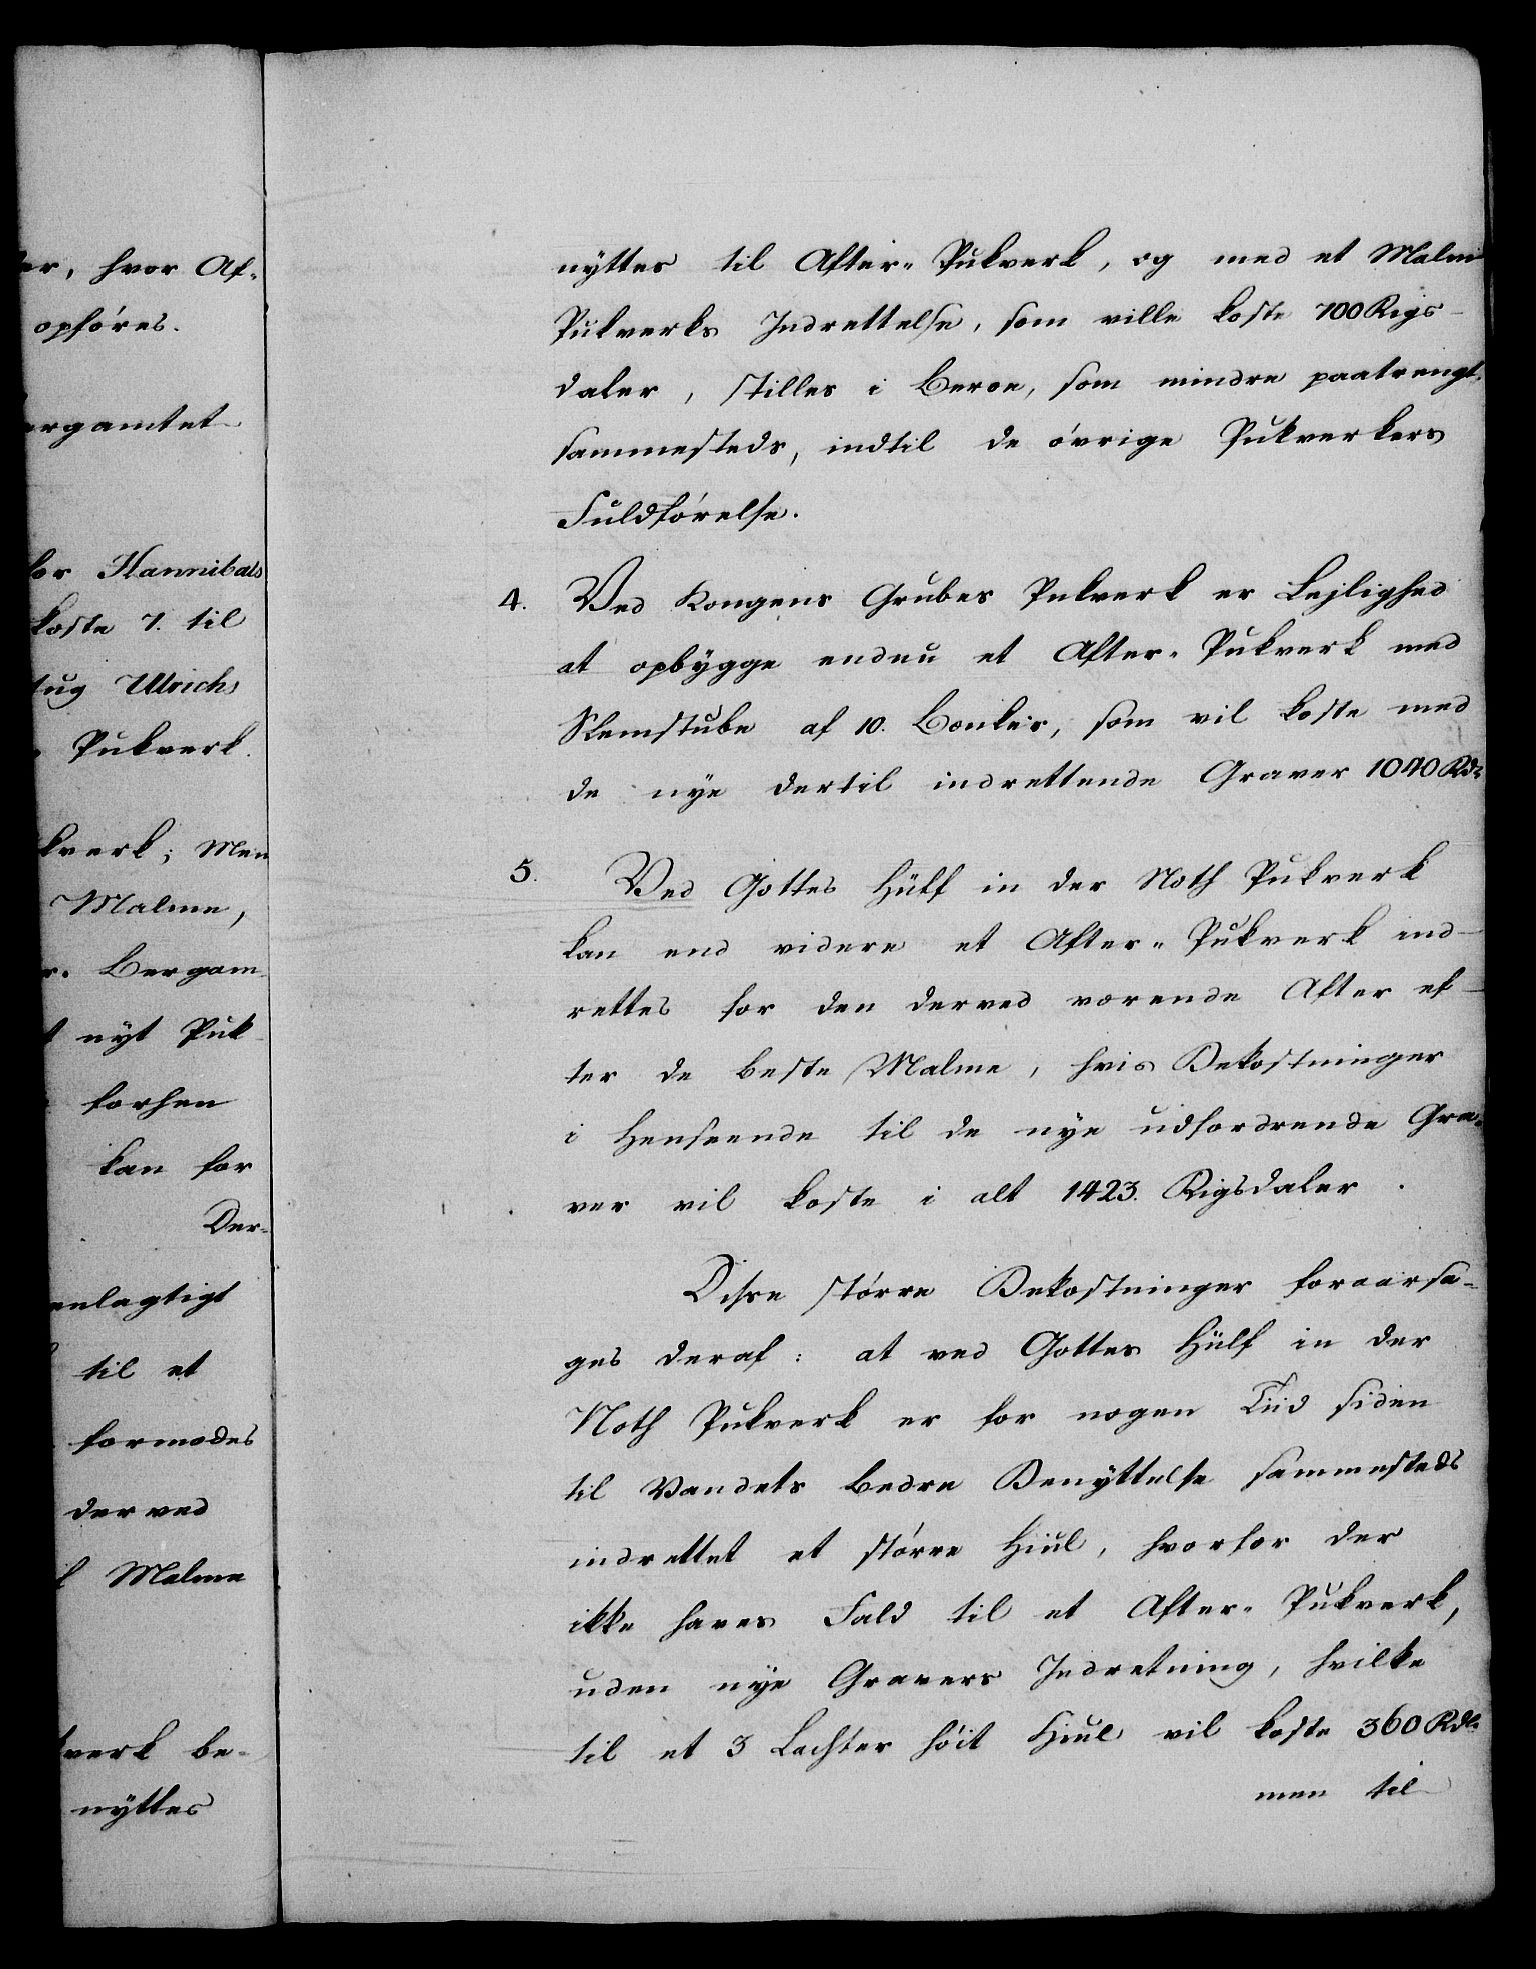 er, hvor Af-
opföres.
ergamtet
for Hannibals
koste 7. til
tug Ulrichs
Pukverk.
kverk; Men
Malme,
r. Bergam-
t nyt Puk-
forhen
kan for
Der-
enlagtigt
til et
formodes
derved
f Malme
verk be-
nyttes
nyttes til After-Pukverk, og med et Malm
Pukverks Indrettelse, som ville koste 700 Rigs-
daler, stilles i Beroe, som mindre paatrengt
sammesteds, indtil de övrige Pukverkers
Fuldförelse.
4. Ved Kongens Grubes Pukverk er Lejlighed
at opbygge endnu et After-Pukverk med
Slemstube af 10. Bænker, som vil koste med
de nye dertil indrettende Graver 1040 Rdr
5. Ved Gottes Hülf in der Noth Pukverk
kan end videre et After-Pukverk ind-
rettes for den derved værende After ef-
ter de beste Malme, hvis Bekostninger
i Henseende til de nye udfordrende Gra-
ver vil koste i alt 1423. Rigsdaler.
Disse större Bekostninger foraarsa-
ges deraf: at ved Gottes Hülf in der
Noth Pukverk er for nogen Tiid siden
til Vandets bedre Benyttelse sammesteds
indrettet et större Hiul, hvorfor der
ikke haves Fald til et After-Pukverk,
uden nye Gravers Indretning, hvilke
til et 3 Lachter höit Hiul vil koste 360 Rdr
men til